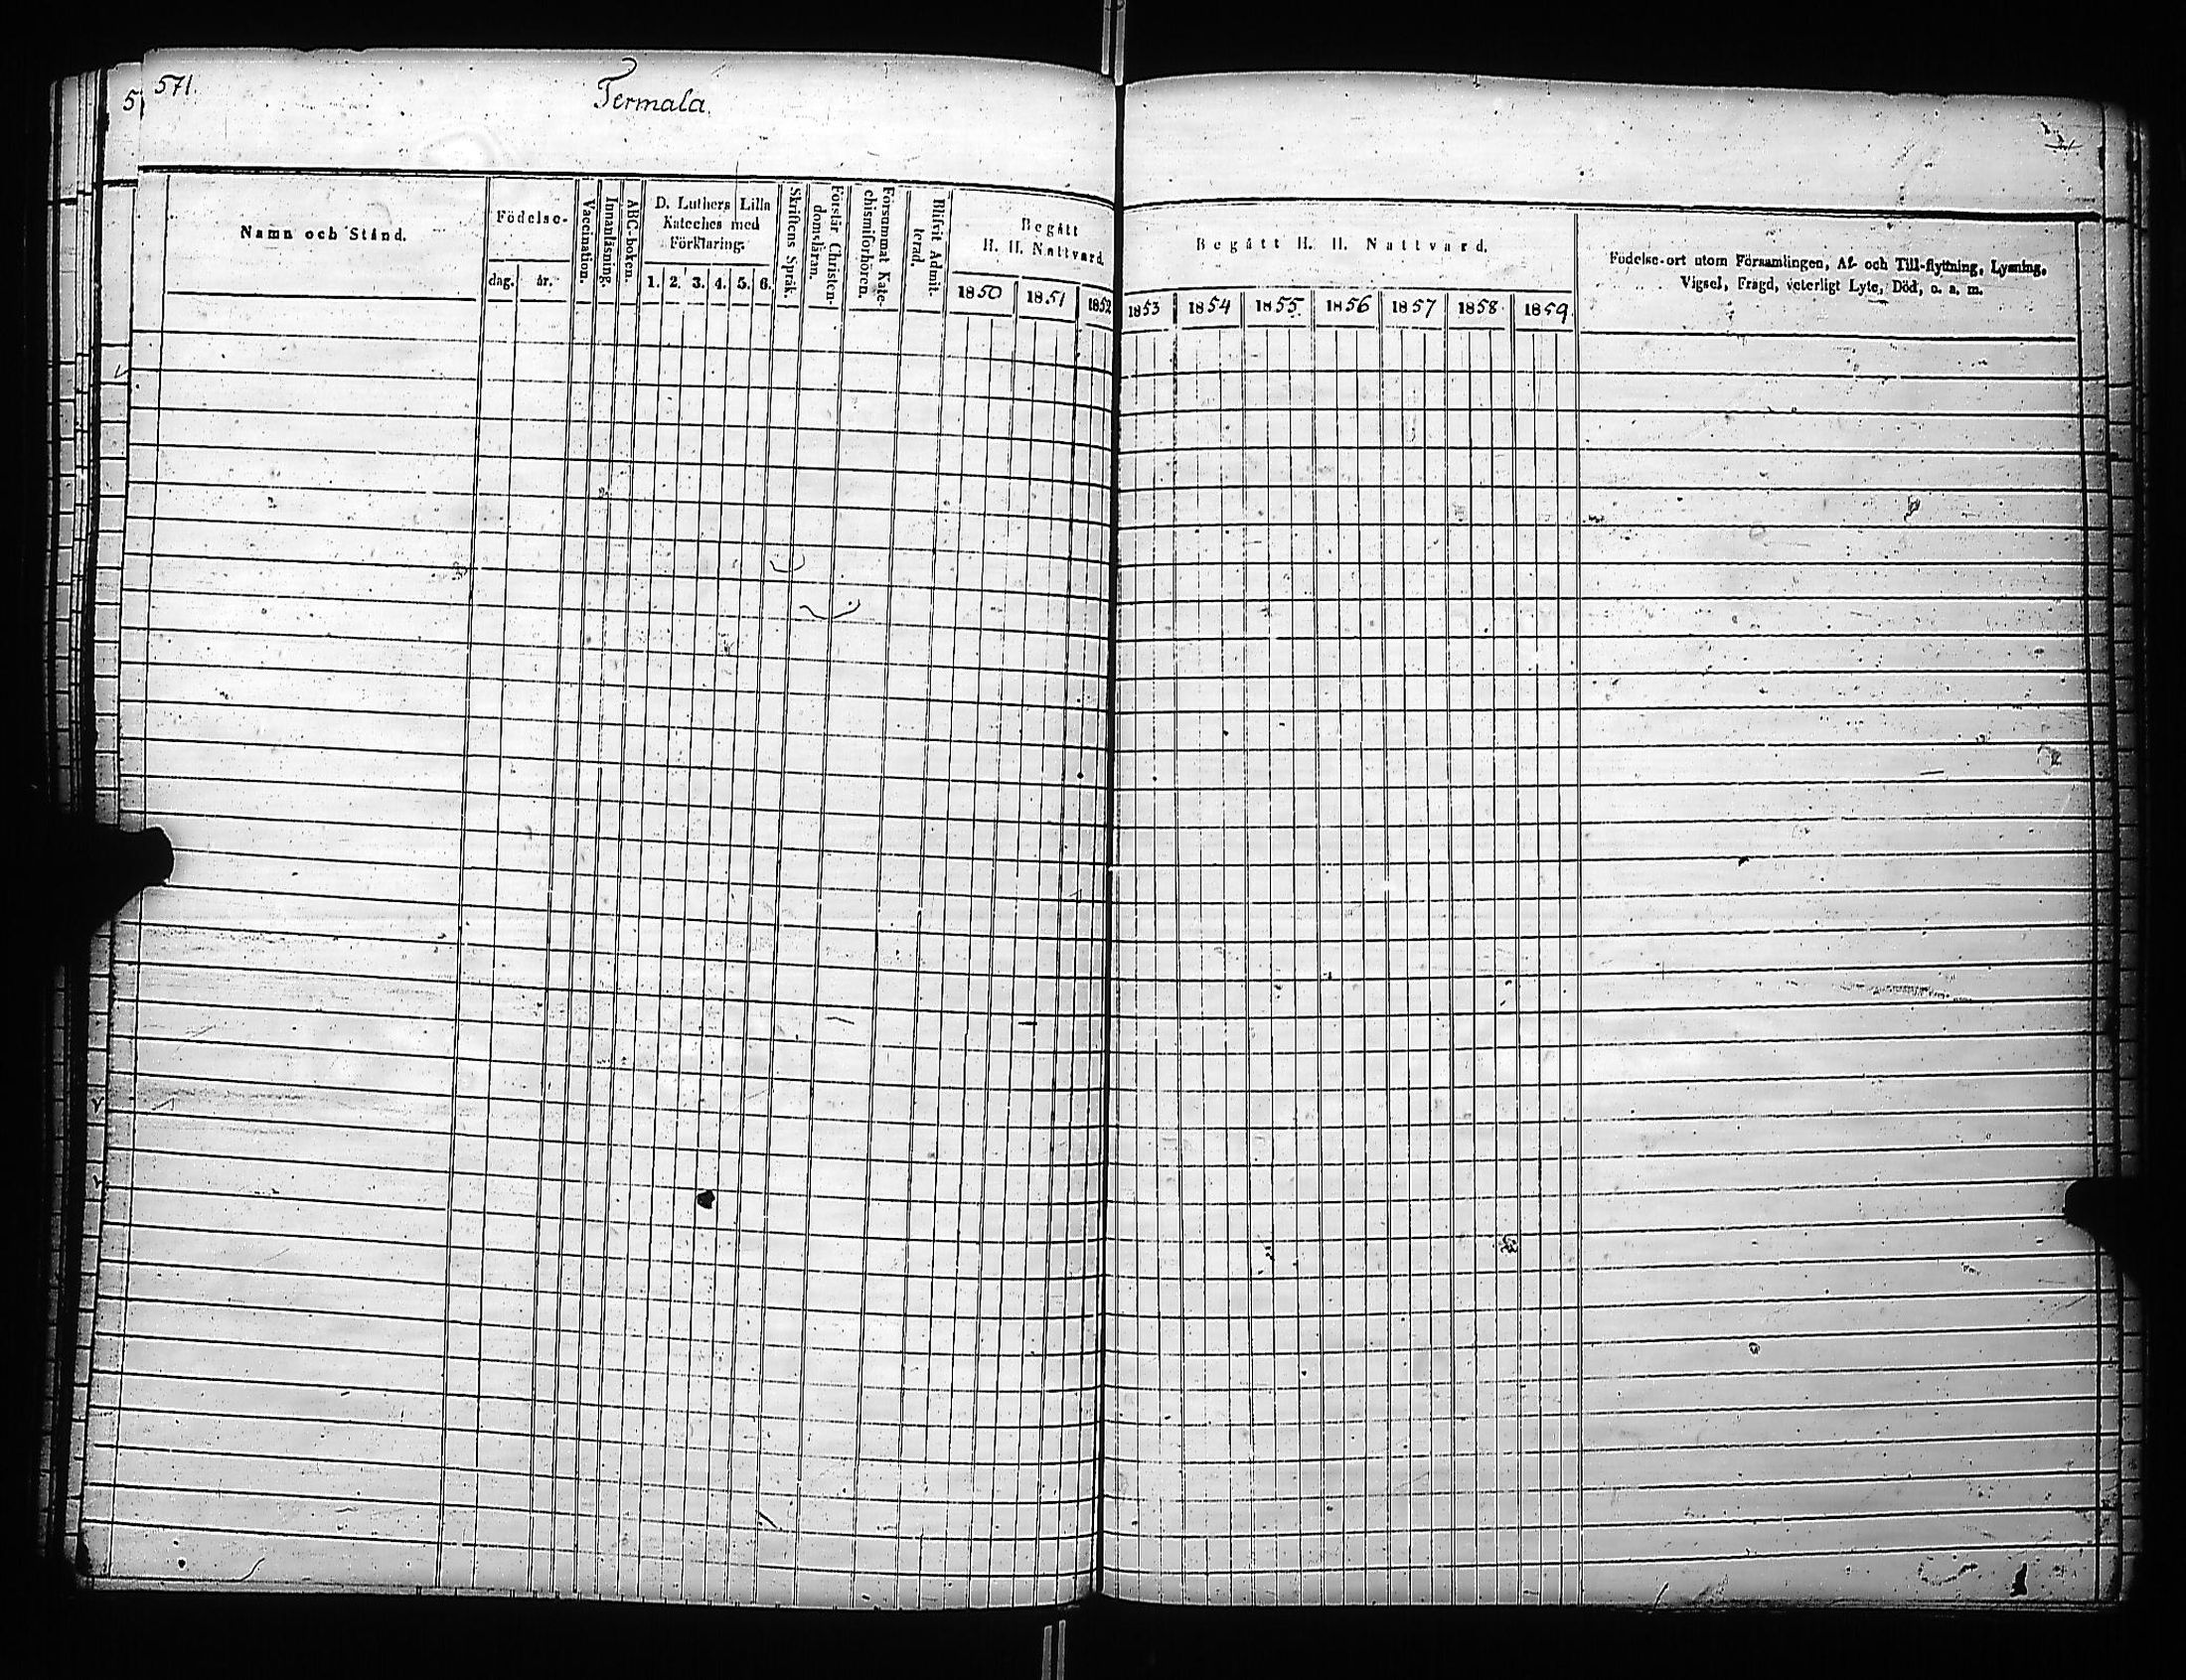 571.
Termala.
5
Namn och Stånd.
Födelse-
dag.
år.
Vaccination.
Innanläsning.
ABC-boken.
D. Luthers Lilla
Kateches med
Förklaring.
1. 2. 3. 4. 5. 6.
Skriftens Språk.
Förstår Christen-
domsläran.
Försummat Kate-
chismiförhören.
Blifvit Admit-
terad.
Begått
H. H. Nattvard.
1850 1851 1852
Begått H. H. Nattvard.
1853 1854 1855. 1856 1857 1858. 1859.
Födelse-ort utom Församlingen, Af- och Till-flyttning, Lysning,
Vigsel, Frägd, veterligt Lyte, Död, o. s. m.